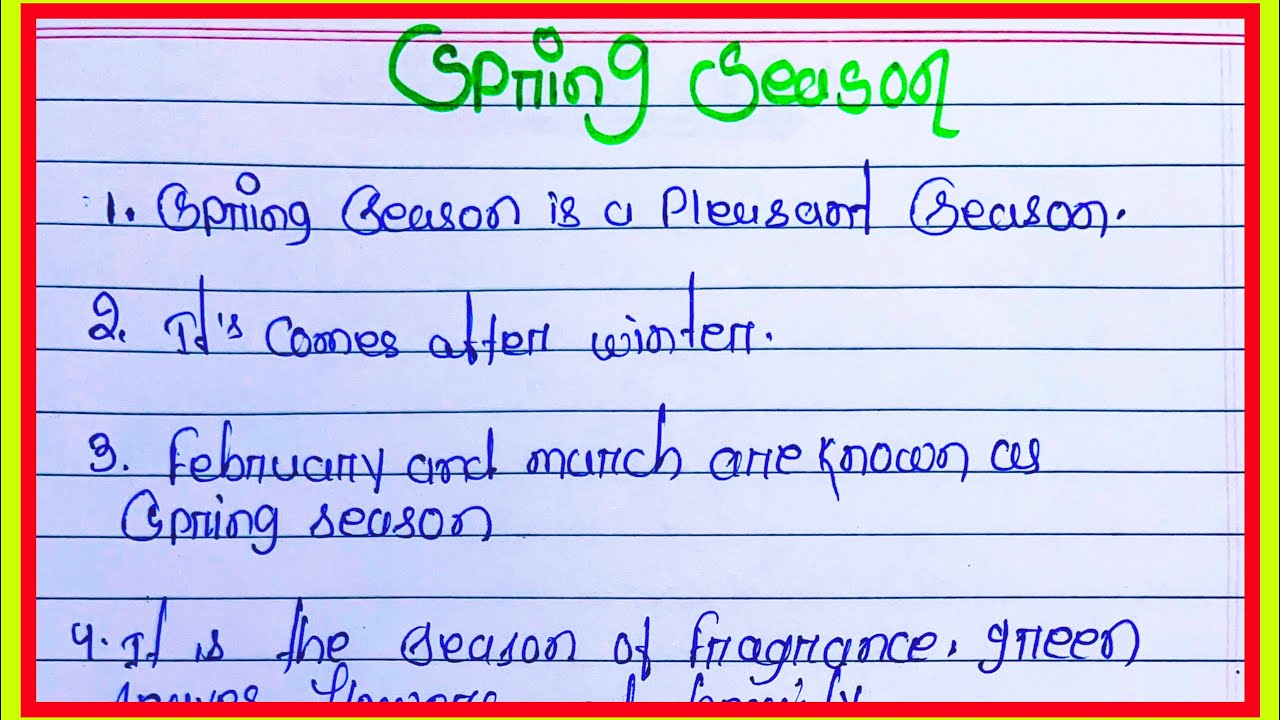 Spring Season
1. Spring Season is a Pleasant Season.
2. It's Comes after winter.
3. February and march are known as
Spring season
4. It is the season of fragrance, green